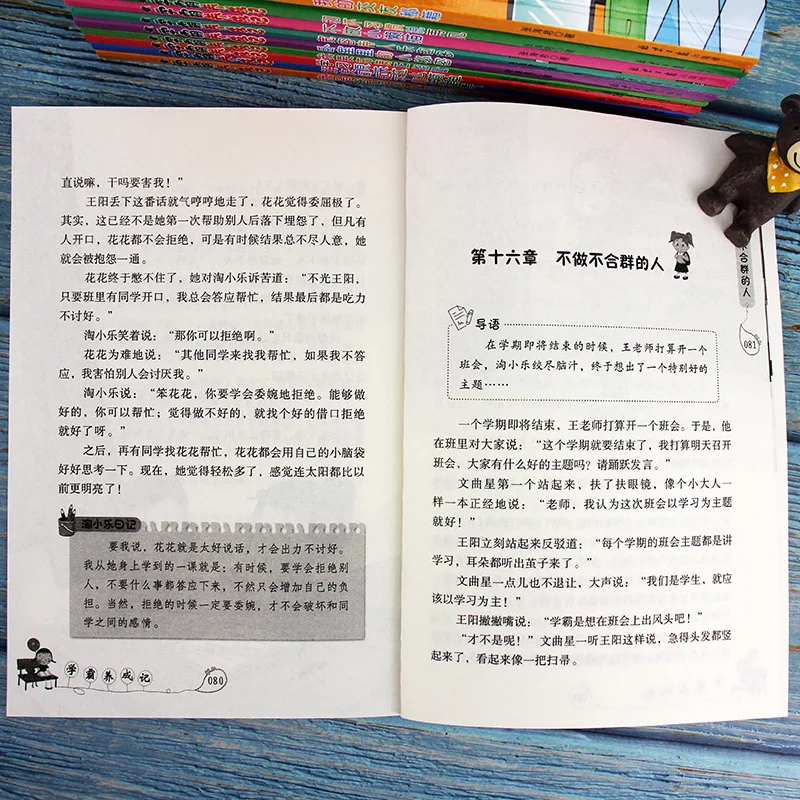 直说嘛，干吗要害我！”
王阳丢下这番话就气哼哼地走了，花花觉得委屈极了。
其实，这已经不是她第一次帮助别人后落下埋怨了，但凡有
人开口，花花都不会拒绝，可是有时候结果总不尽人意，她
就会被抱怨一通。
花花终于憋不住了，她对淘小乐诉苦道：“不光王阳，
只要班里有同学开口，我总会答应帮忙，结果最后都是吃力
不讨好。”
淘小乐笑着说：“那你可以拒绝啊。”
花花为难地说：“其他同学来找我帮忙，如果我不答
应，我害怕别人会讨厌我。”
淘小乐说：“笨花花，你要学会委婉地拒绝。能够做
好的，你可以帮忙；觉得做不好的，就找个好的借口拒绝
就好了呀。”
之后，再有同学找花花帮忙，花花都会用自己的小脑袋
好好思考一下。现在，她觉得轻松多了，感觉连太阳都比以
前更明亮了！
淘小乐日记
要我说，花花就是太好说话，才会出力不讨好。
我从她身上学到的一课就是：有时候，要学会拒绝别
人，不要什么事都答应下来，不然只会增加自己的负
担。当然，拒绝的时候一定要委婉，才不会破坏和同
学之间的感情。
学霸养成记
080
第十六章 不做不合群的人
导语
在学期即将结束的时候，王老师打算开一个
班会，淘小乐绞尽脑汁，终于想出了一个特别好的
主题……
一个学期即将结束，王老师打算开一个班会。于是，他
在班里对大家说：“这个学期就要结束了，我打算明天召开
班会，大家有什么好的主题吗？请踊跃发言。”
文曲星第一个站起来，扶了扶眼镜，像个小大人一
样一本正经地说：“老师，我认为这次班会以学习为主题
就好！”
王阳立刻站起来反驳道：“每个学期的班会主题都是讲
学习，耳朵都听出茧子来了。”
文曲星一点儿也不退让，大声说：“我们是学生，就应
该以学习为主！”
王阳撇撇嘴说：“学霸是想在班会上出风头吧！”
“才不是呢！”文曲星一听王阳这样说，急得头发都竖
起来了，看起来像一把扫帚。
合群的人
081